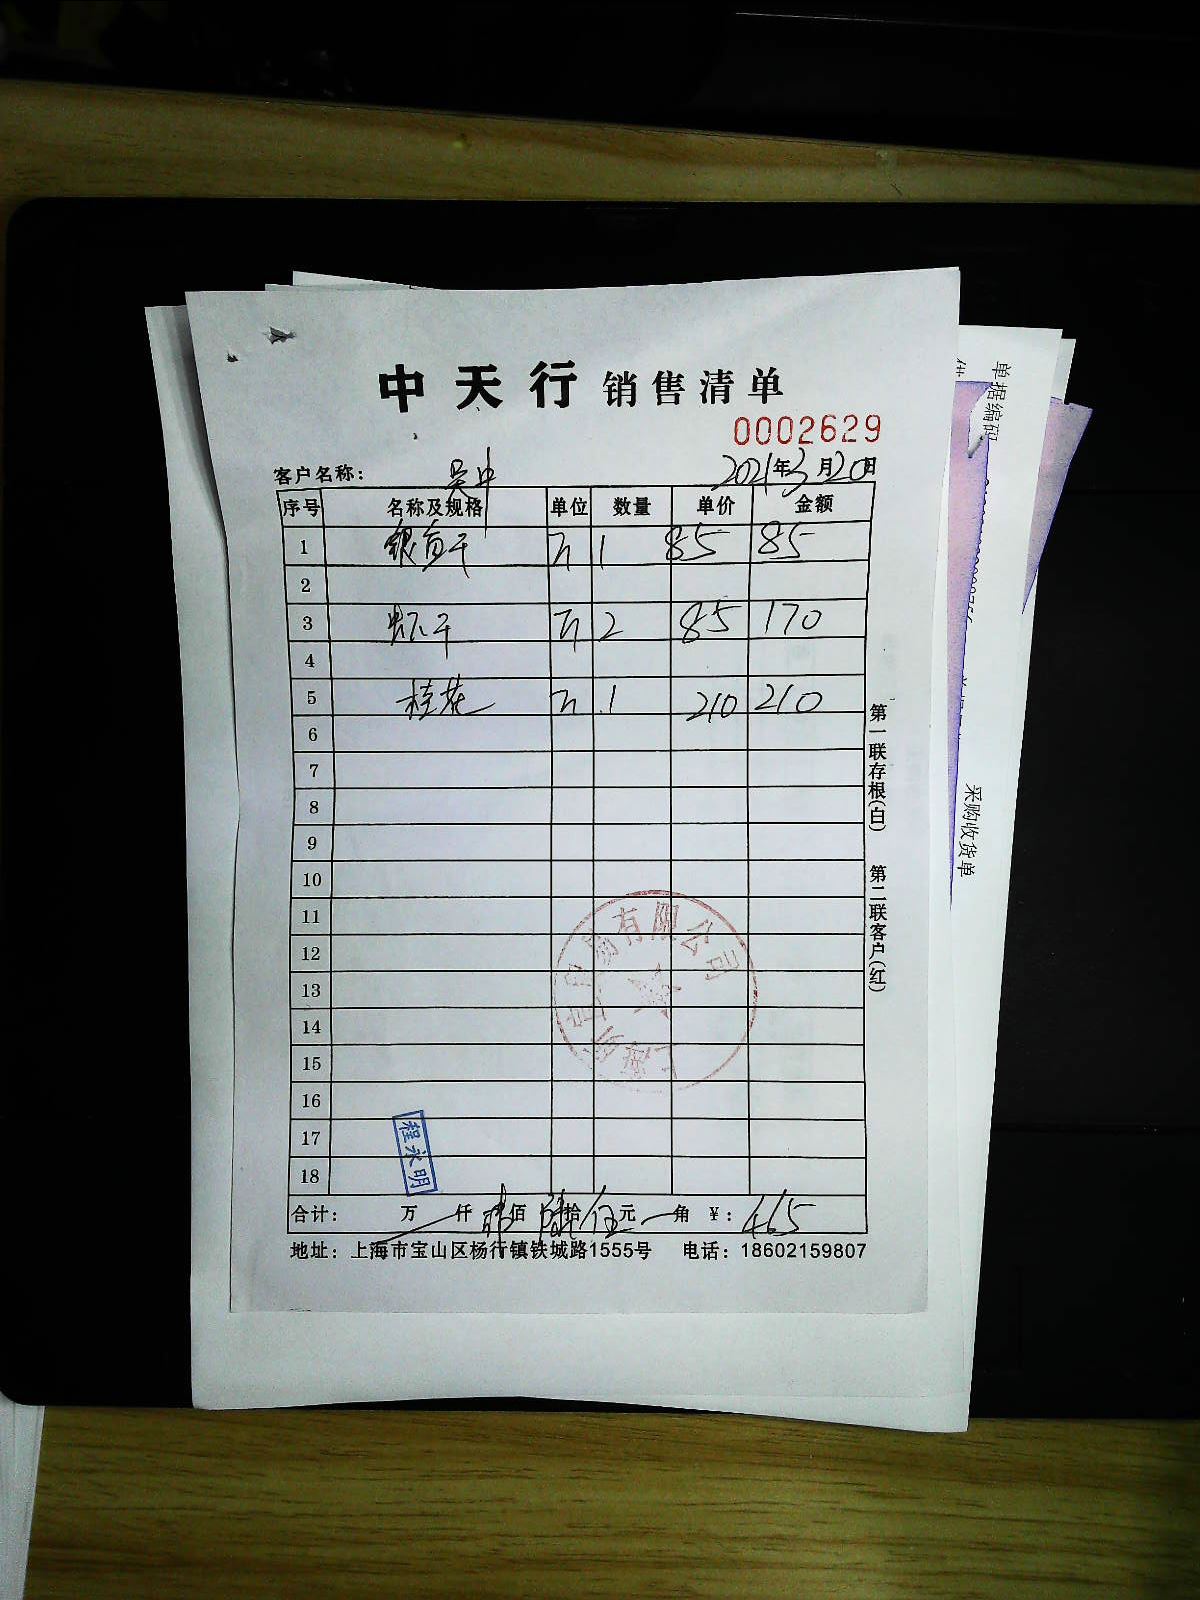 中天行 销售清单
0002629
客户名称: 吴中 2021年3月20日
序号 名称及规格 单位 数量 单价 金额
1 银鱼干 斤 1 85 85
2
3 虾干 斤 2 85 170
4
5 桂花 斤 1 210 210
6
7
8
9
10
11
12
13
14
15
16
17
18
合计: 万 仟 肆佰 陆拾 伍元 角 ¥: 465
地址: 上海市宝山区杨行镇铁城路1555号 电话: 18602159807
第一联存根(白) 第二联客户(红)
程永明
贸易有限公司
单据编码
采购收货单